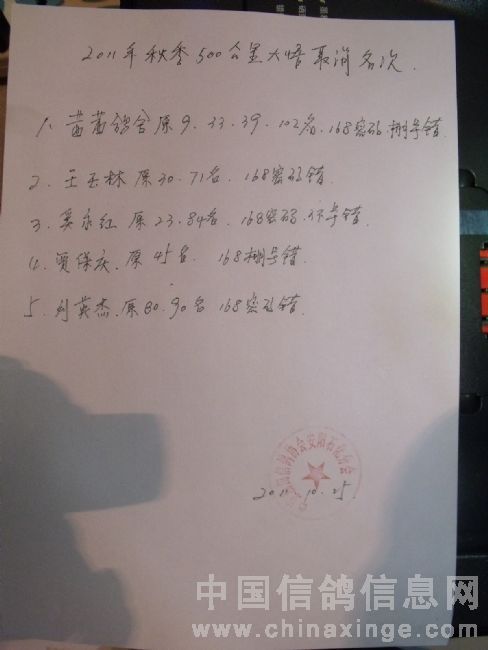 2011年秋季500公里大悟取消名次.
1、茜茜鸽舍原9.33.39.102名.168密码.棚号错.
2. 王玉林原30.71名.168密码错.
3. 姜永红原23.84名.168密码.环号错.
4. 贾保庆.原45名 168棚号错.
5. 刘英杰.原80.90名168密码错.
信鸽协会安阳石化分会
2011.10.25
中国信鸽信息网
www.chinaxinge.com